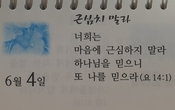 근심치 말라
너희는
마음에 근심하지 말라
하나님을 믿으니
또 나를 믿으라 (요 14:1)
6월 4일